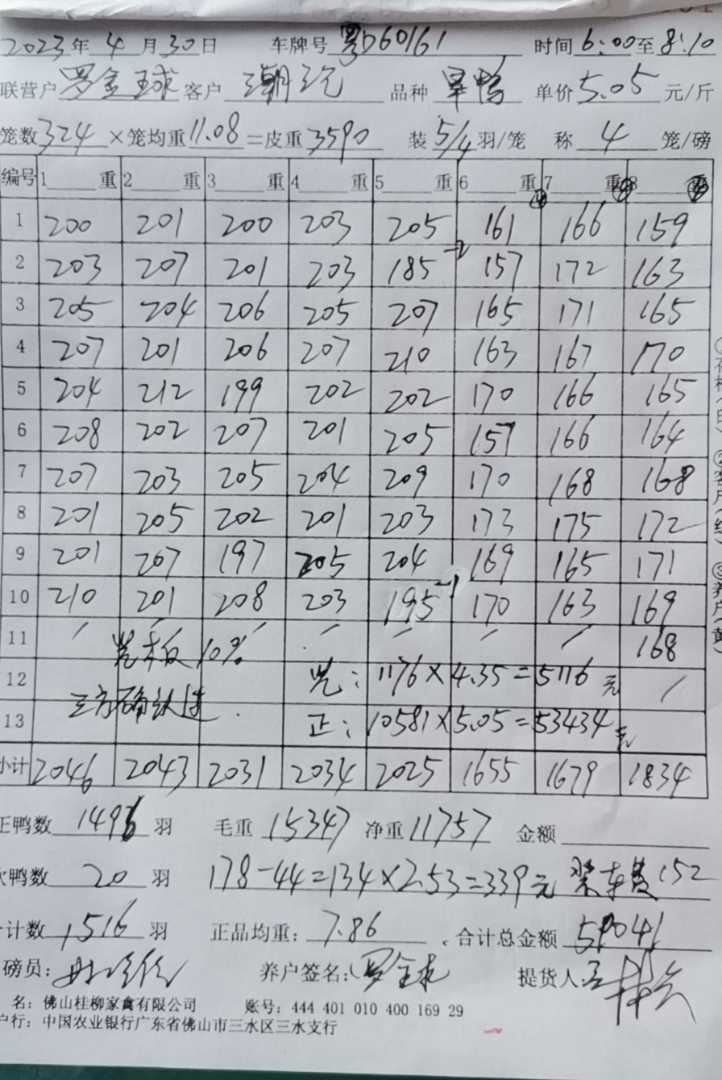 2023年4月30日 车牌号 粤D60161 时间6:00至8:10
联营户 罗金球 客户 潮 品种 旱鸭 单价5.05元/斤
笼数324×笼均重11.08=皮重3590 装5/4羽/笼 称 4 笼/磅
编号 1 重 2 重 3 重 4 重 5 重 6 重 7 重 8 重
1 200 201 200 203 205 161 166 159
2 203 207 201 203 185 -2 157 172 163
3 205 204 206 205 207 165 171 165
4 207 201 206 207 210 163 167 170
5 204 212 199 202 202 170 166 165
6 208 202 207 201 205 157 166 164
7 207 203 205 204 209 170 168 168
8 201 205 202 201 203 173 175 172
9 201 207 197 205 204 169 165 171
10 210 201 208 203 195 -1 170 163 169
11 / / / / / / / 168
10%
12 1176×4.35=5116元 /
三方确认
13 正:10581×5.05=53434元
小计 2046 2043 2031 2034 2025 1655 1679 1834
正鸭数 1496 羽 毛重 15347 净重 11757 金额
次鸭数 20 羽 178-44=134×2.53=339元 装车费152
合计数 1516 羽 正品均重: 7.86 合计总金额 59041
磅员: 养户签名: 罗金球 提货人:
名: 佛山桂柳家禽有限公司 账号: 444 401 010 400 169 29
户行: 中国农业银行广东省佛山市三水区三水支行